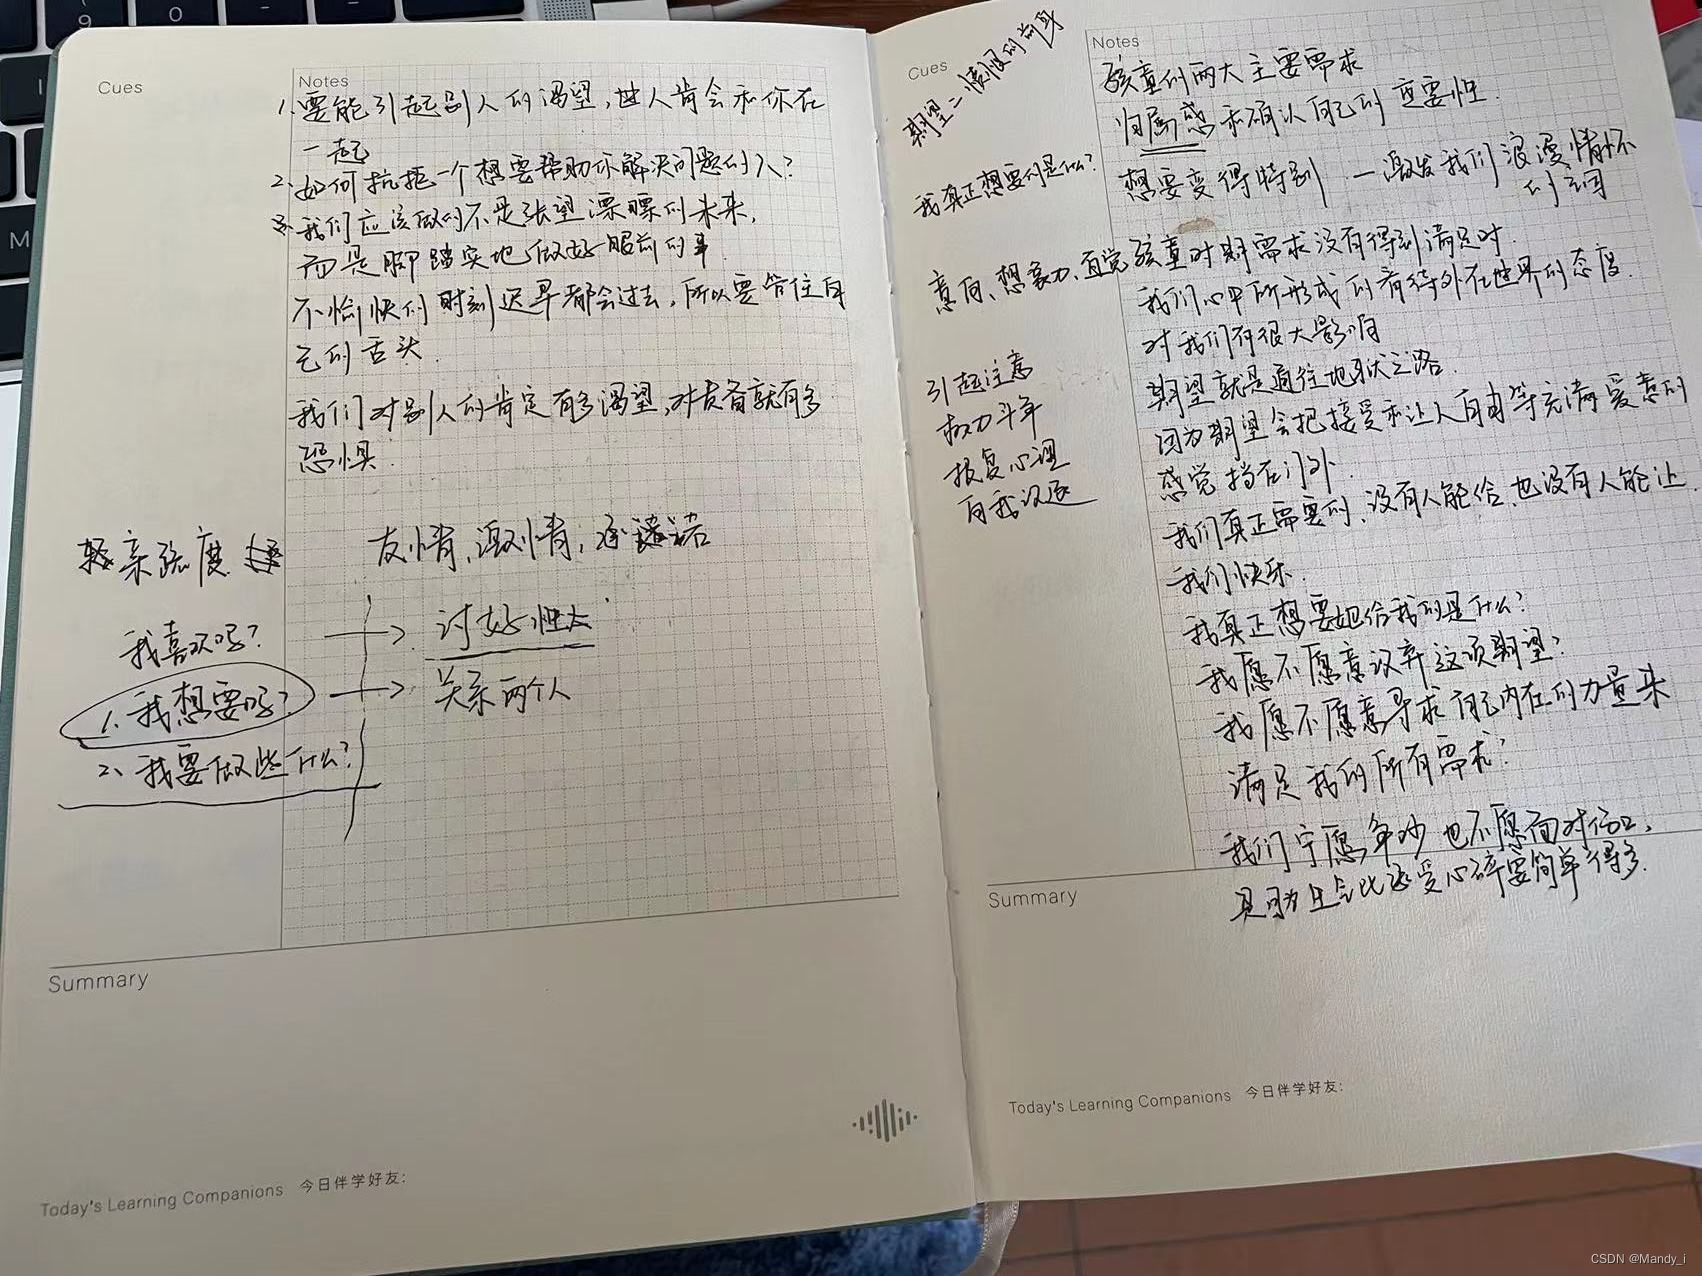 Cues
Notes
1、要能引起别人的渴望,世人肯会和你在
一起
2、如何抗拒一个想要帮助你解决问题的人?
3、我们应该做的不是张望漂瞟的未来,
而是脚踏实地做好眼前的事.
不愉快的时刻迟早都会过去,所以要管住自
己的舌头.
我们对别人的肯定有多渴望,对责备就有多
恐惧.
亲疏度
友情,激情,承诺
我喜欢吗?
讨好性大
1、我想要吗?
关系两个人
2、我要做些什么?
Summary
Today's Learning Companions 今日伴学好友:
Cues
期望=愤恨的前身
我真正想要的是什么?
意向、想象力、直觉
引起注意
权力斗争
报复心理
自我放逐
Notes
孩童的两大主要需求
归属感和确认自己的重要性.
想要变得特别 — 激发我们浪漫情怀
的词
孩童时期需求没有得到满足时.
我们心中所形成的看待外在世界的态度.
对我们有很大影响
期望就是通往地狱之路.
因为期望会把接受和让人自由等充满爱意的
感觉挡在门外.
我们真正需要的、没有人能给、也没有人能让
我们快乐.
我真正想要她给我的是什么?
我愿不愿意放弃这项期望?
我愿不愿意寻求自己内在的力量来
满足我的所有需求?
我们宁愿争吵也不愿面对伤口,
因为生会比承受心碎要简单得多.
Summary
Today's Learning Companions 今日伴学好友:
CSDN @Mandy_i